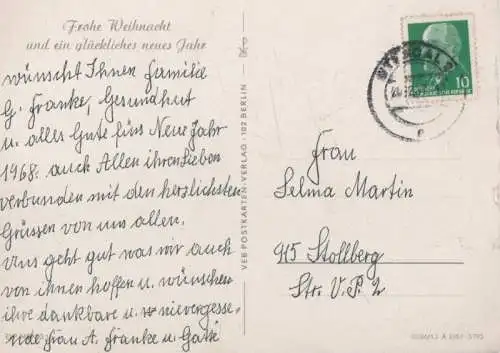 Frohe Weihnacht
und ein glückliches neues Jahr
wünscht Ihnen familie
G. Franke, Gesundheit
u. alles Gute fürs Neue Jahr
1968. auch Allen ihren Lieben
verbunden mit den herzlichsten
Grüssen von uns allen.
Uns geht gut was wir auch
von ihnen hoffen u. wünschen
ihre dankbare u. nievergesse-
nde frau A. Franke u. Gatte
VEB POSTKARTEN-VERLAG · 102 BERLIN
10
Frau
Selma Martin
915 Stollberg
Str. V. P. 2